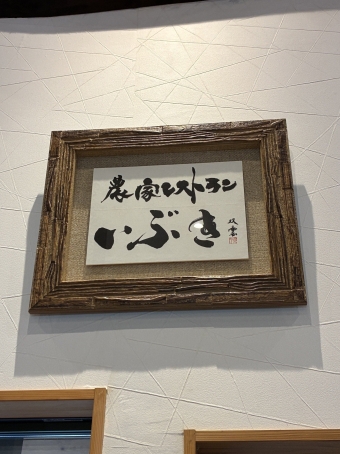 農家レストラン
いぶき